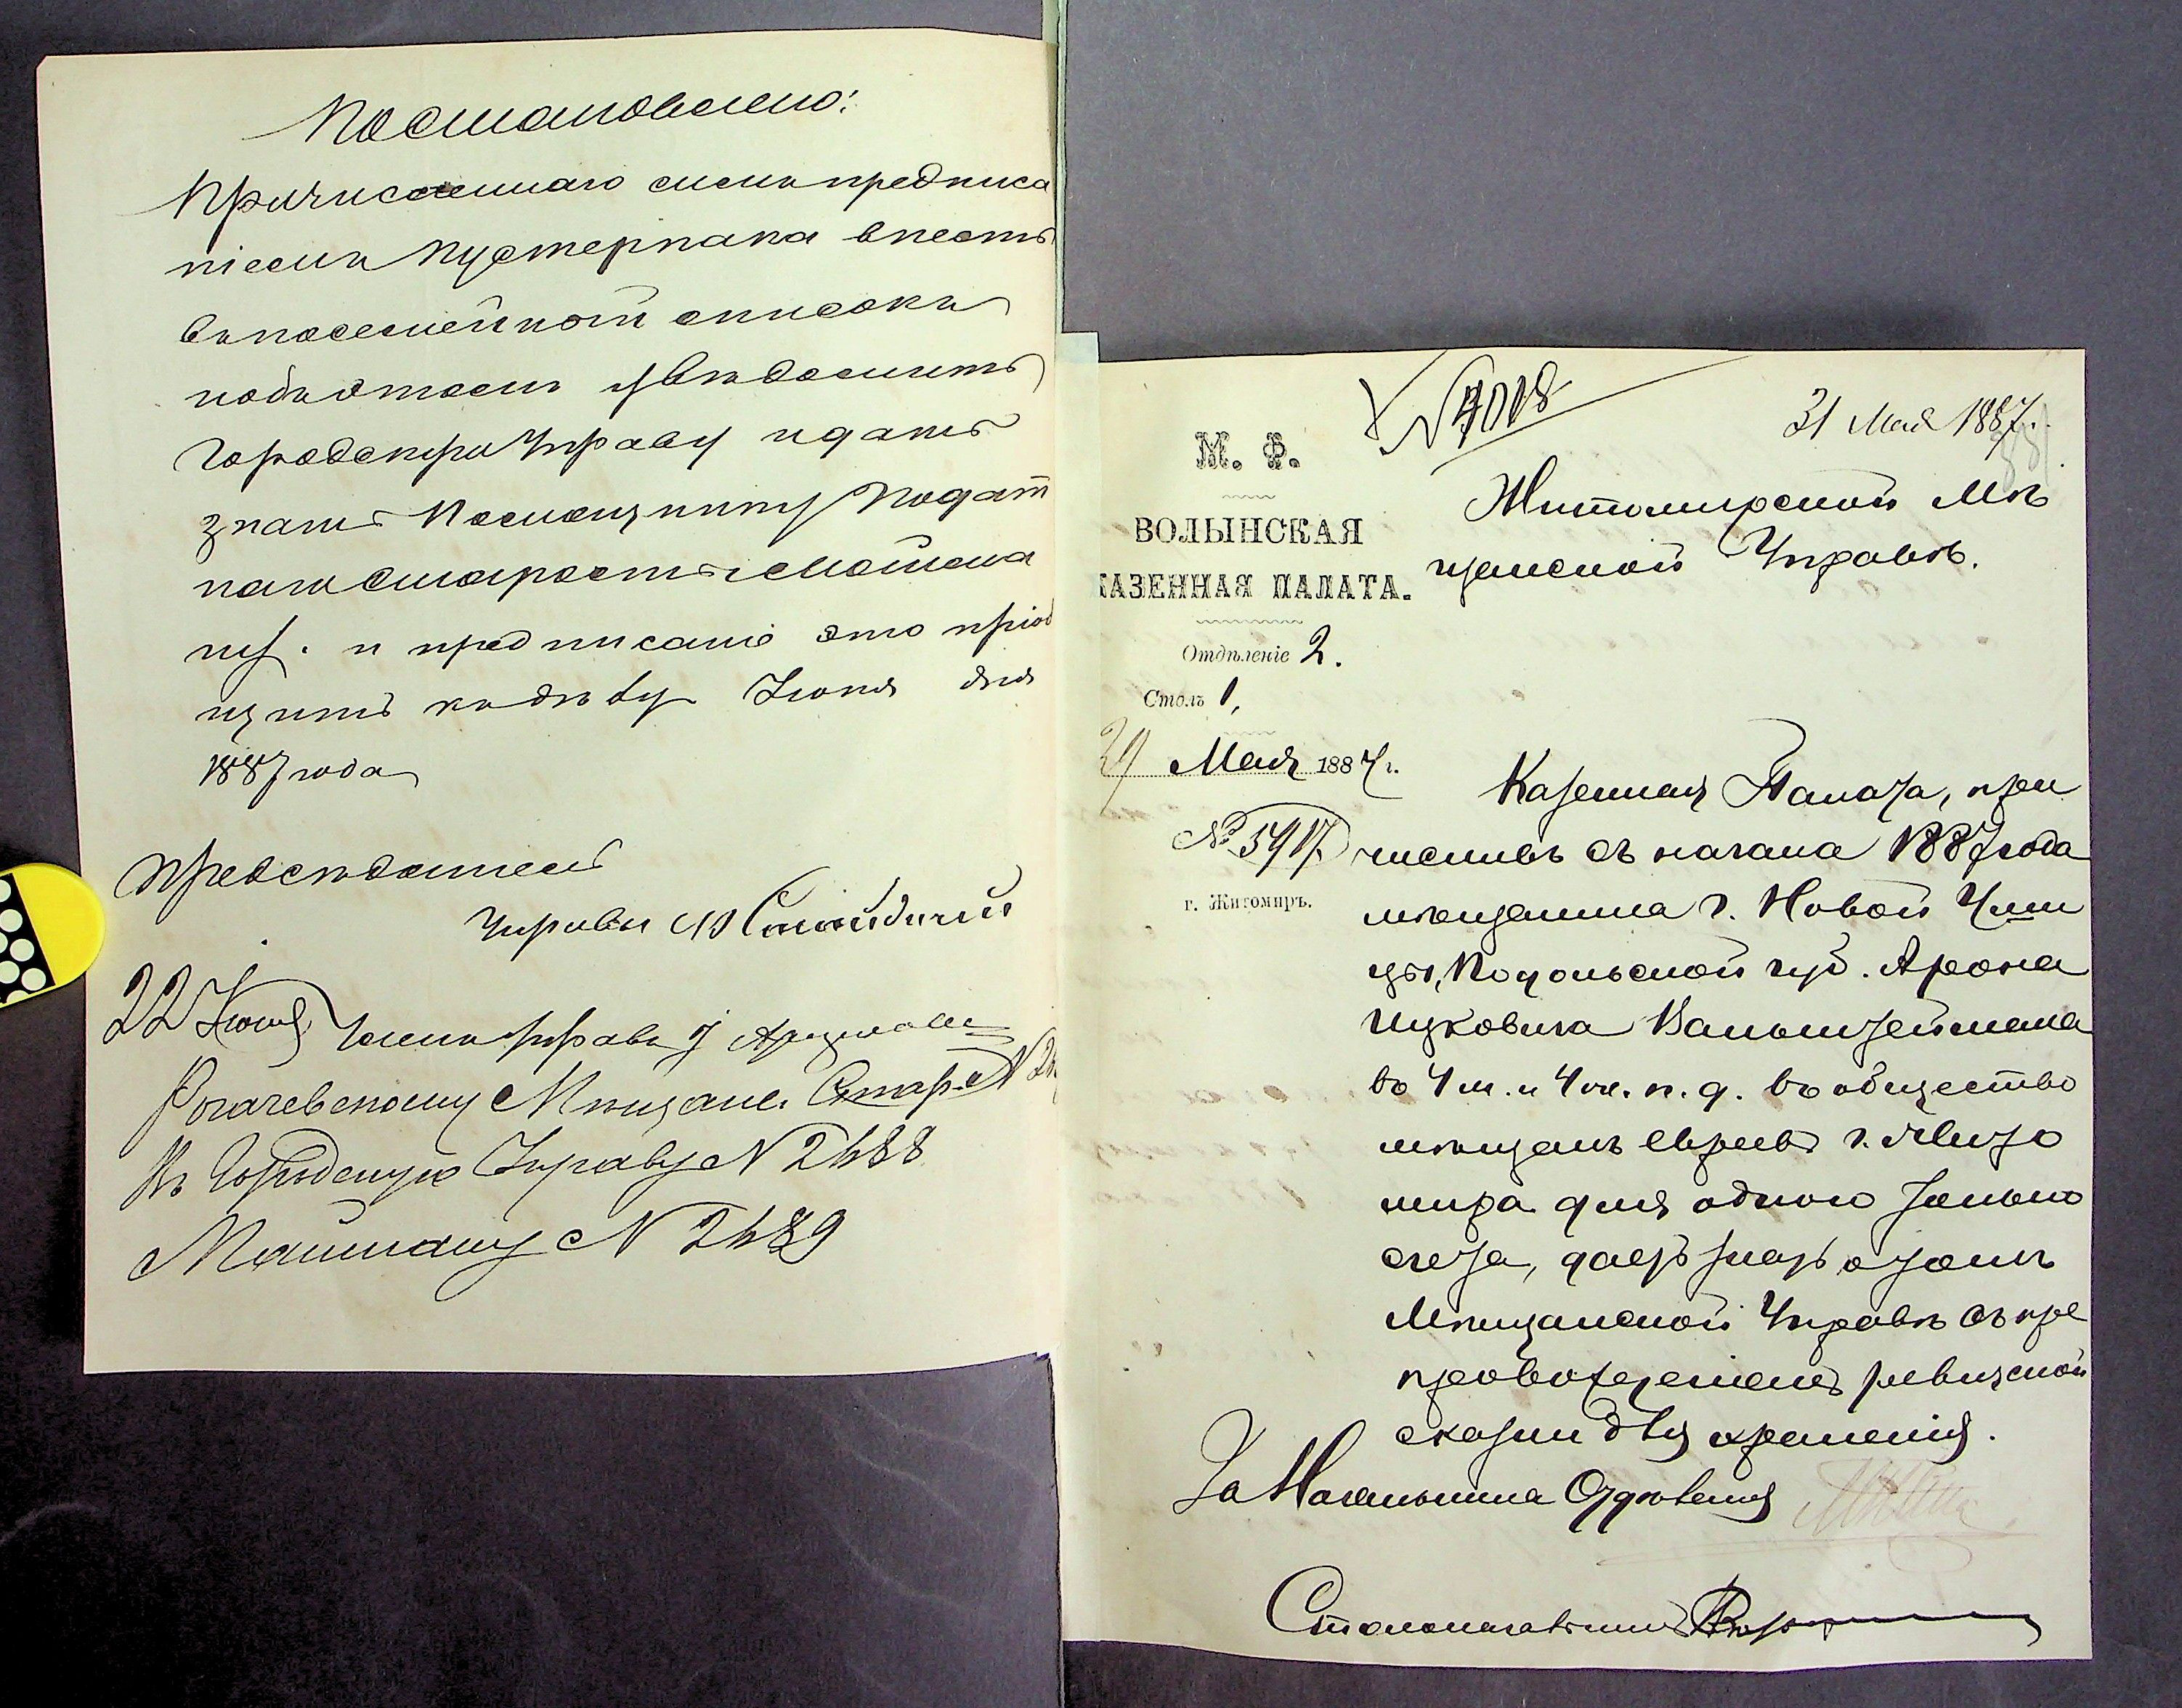 Постановлено:
Причисленнаго симъ предписа
ніемъ Пустерпака внесть
въ посемейный списокъ
объ этомъ увѣдомить
Городскую Управу и дать
знать Помощнику Подат
наго Старосты Мойшма
ну. и предписаніе это пріоб
щить къ дѣлу Іюня дня
1887 года
Предсѣдатель
Управы
22 Іюня Членъ Управы
Рогачевскому Мѣщанс. Старос. №
Въ Городскую Управу № 2488
Мойшману № 2489
№ 4018
31 Мая 1887.
М. Ф.
ВОЛЫНСКАЯ
КАЗЕННАЯ ПАЛАТА.
Отдѣленіе 2.
Столъ 1,
29 Мая 1887 г.
№ 5917
г. Житомиръ.
Житомирской Мѣ
щанской Управѣ.
Казенная Палата, при
числивъ съ начала 1887 года
мѣщанина г. Новой Уши
цы, Подольской губ. Арона
Ицковича Вальтзеймана
въ 4 м. и 4 ж. п. д. въ общество
мѣщанъ евреевъ г. Жито
мира для одного только
счета, даетъ знать о томъ
Мѣщанской Управѣ съ пре
провожденіемъ ревизской
сказки для храненія.
За Начальника Отдѣленія
Столоначальникъ